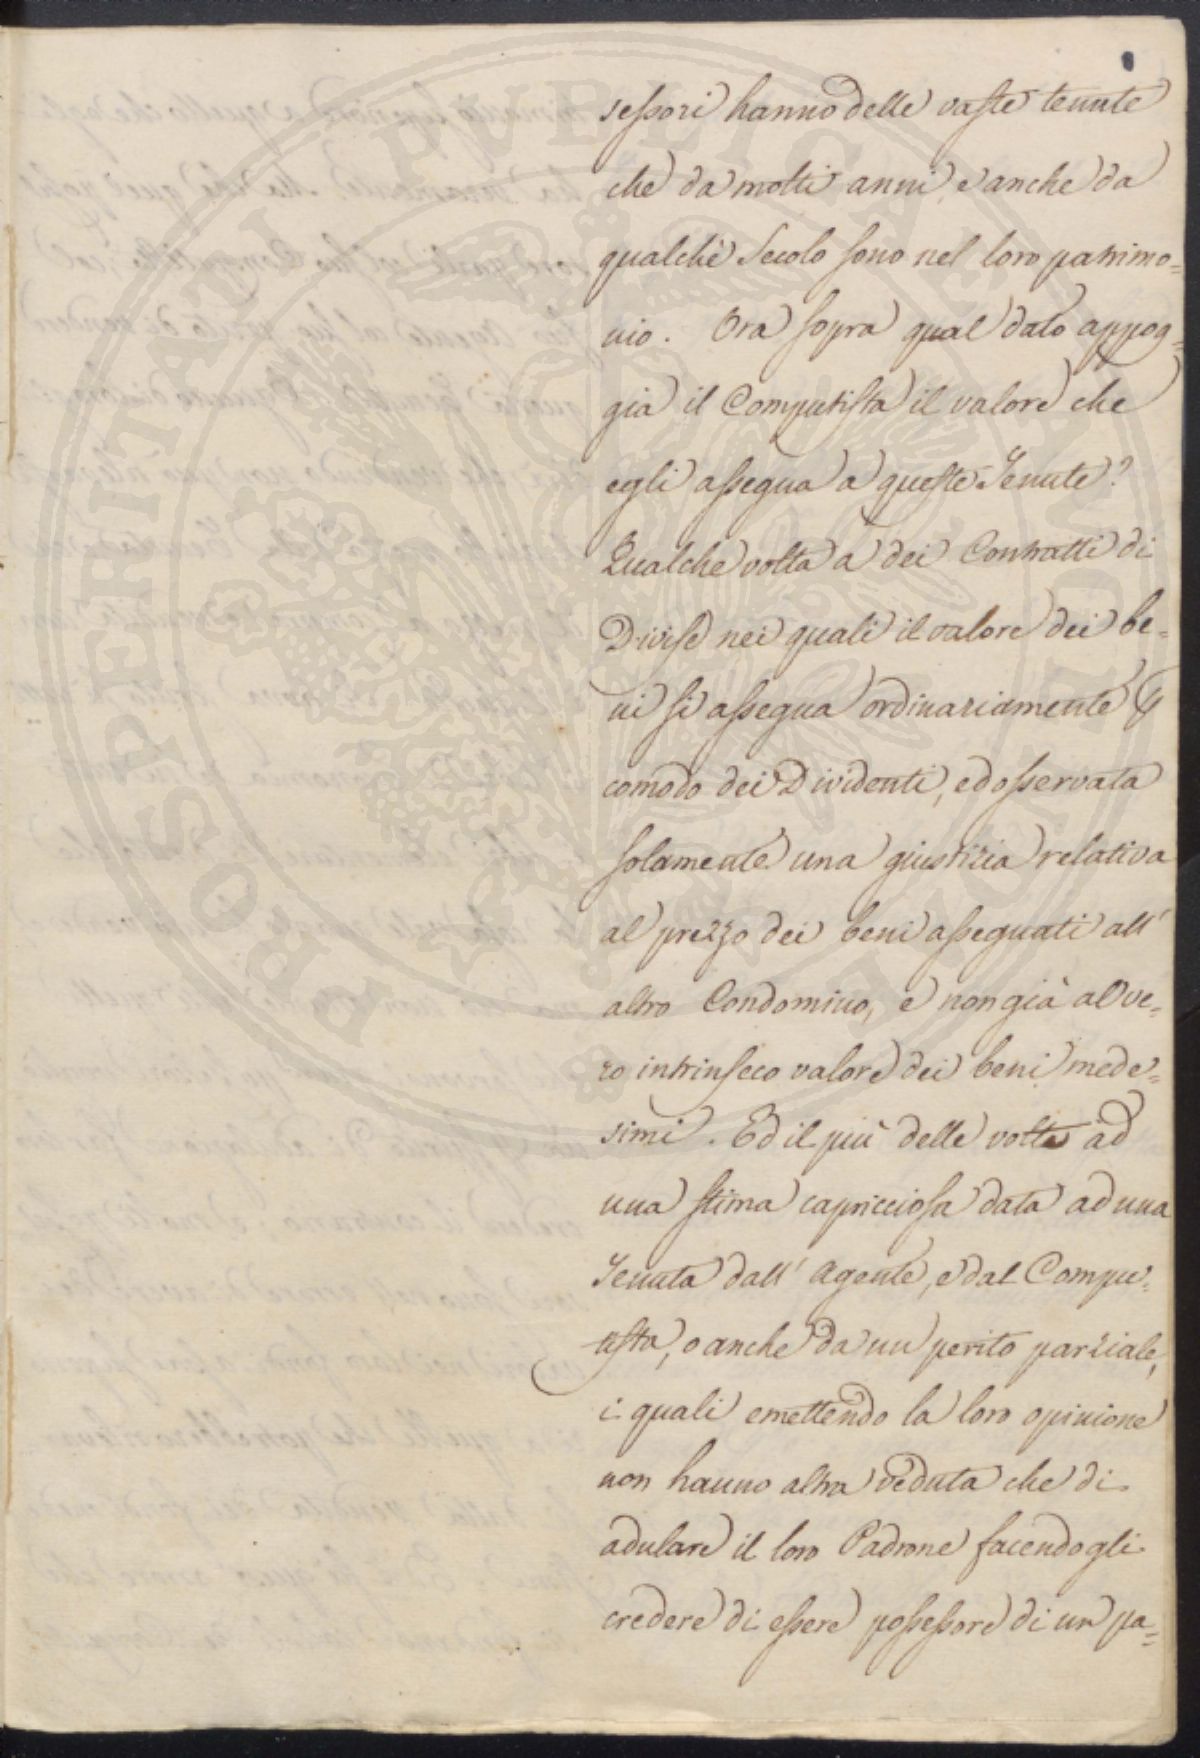 sessori hanno delle vaste tenute
che da molti anni, e anche da
qualche Secolo sono nel loro patrimo=
nio. Ora sopra qual dato appog=
gia il Computista il valore che
egli assegna a queste Tenute?
Qualche volta a dei Contratti di
Divise nei quali il valore dei be=
ni si assegna ordinariamente
comodo dei Dividenti, ed osservata
solamente una giustizia relativa
al prezzo dei beni assegnati all'
altro Condomino, e non già al ve=
ro intrinseco valore dei beni mede=
simi. Ed il più delle volte ad
una stima capricciosa data ad una
Tenuta dall' Agente, e dal Compu=
tista, o anche da un perito parziale,
i quali emettendo la loro opinione
non hanno altra veduta che di
adulare il loro Padrone facendogli
credere di essere possessore di un pa=
PROSPERITATI PUBLICAE AUGENDAE